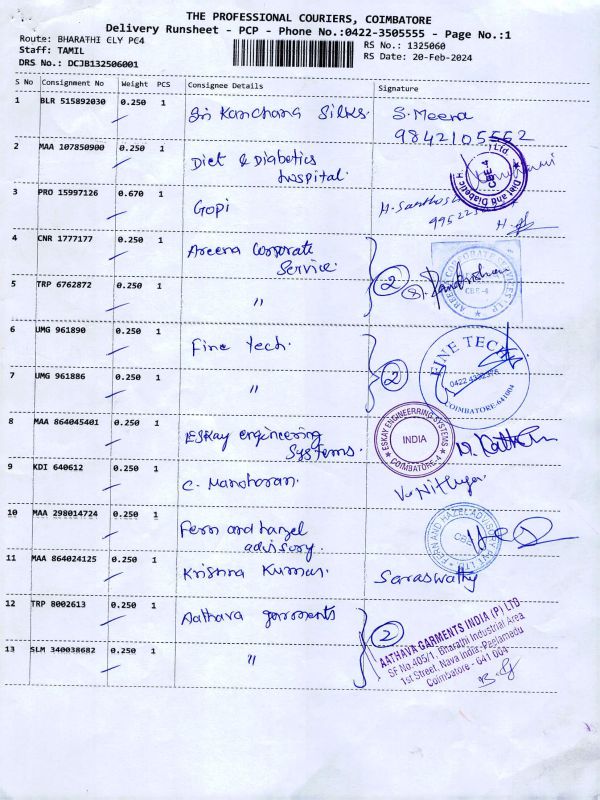 THE PROFESSIONAL COURIERS, COIMBATORE
Delivery Runsheet - PCP - Phone No.:0422-3505555 - Page No.:1
Route: BHARATHI CLY PC4
RS No.: 1325060
Staff: TAMIL
RS Date: 20-Feb-2024
DRS No.: DCJB132506001
S No Consignment No Weight PCS Consignee Details Signature
1 BLR 515892030 0.250 1 Sri Kanchana Silks. S. Meera
9842105562
2 MAA 107850900 0.250 1 Diet & Diabetics
hospital.
Diet and Diabetic
CBE-4
3 PRO 15997126 0.670 1 Gopi H. Santhosh
4 CNR 1777177 0.250 1 Areena Corporate
Service.
5 TRP 6762872 0.250 1 "
2
CBE-4
6 UMG 961890 0.250 1 Fine tech.
7 UMG 961886 0.250 1 "
2
FINE TECH
COIMBATORE-641004
8 MAA 864045401 0.250 1 ESKay engineering
Systems.
ESKAY ENGINEERRING SYSTEMS
INDIA
COIMBATORE-4
9 KDI 640612 0.250 1 C. Manoharan.
10 MAA 298014724 0.250 1 Fern and hazel
advisory.
FERN AND HAZEL ADVISORY PVT. LTD
11 MAA 864024125 0.250 1 Krishna Kumar. Saraswathy
12 TRP 8002613 0.250 1 Aathava garments
13 SLM 340038682 0.250 1 "
2
AATHAVA GARMENTS INDIA (P) LTD
SF No.405/1, Bharathi Industrial Area
1st Street, Nava India, Peelamedu
Coimbatore - 641 004